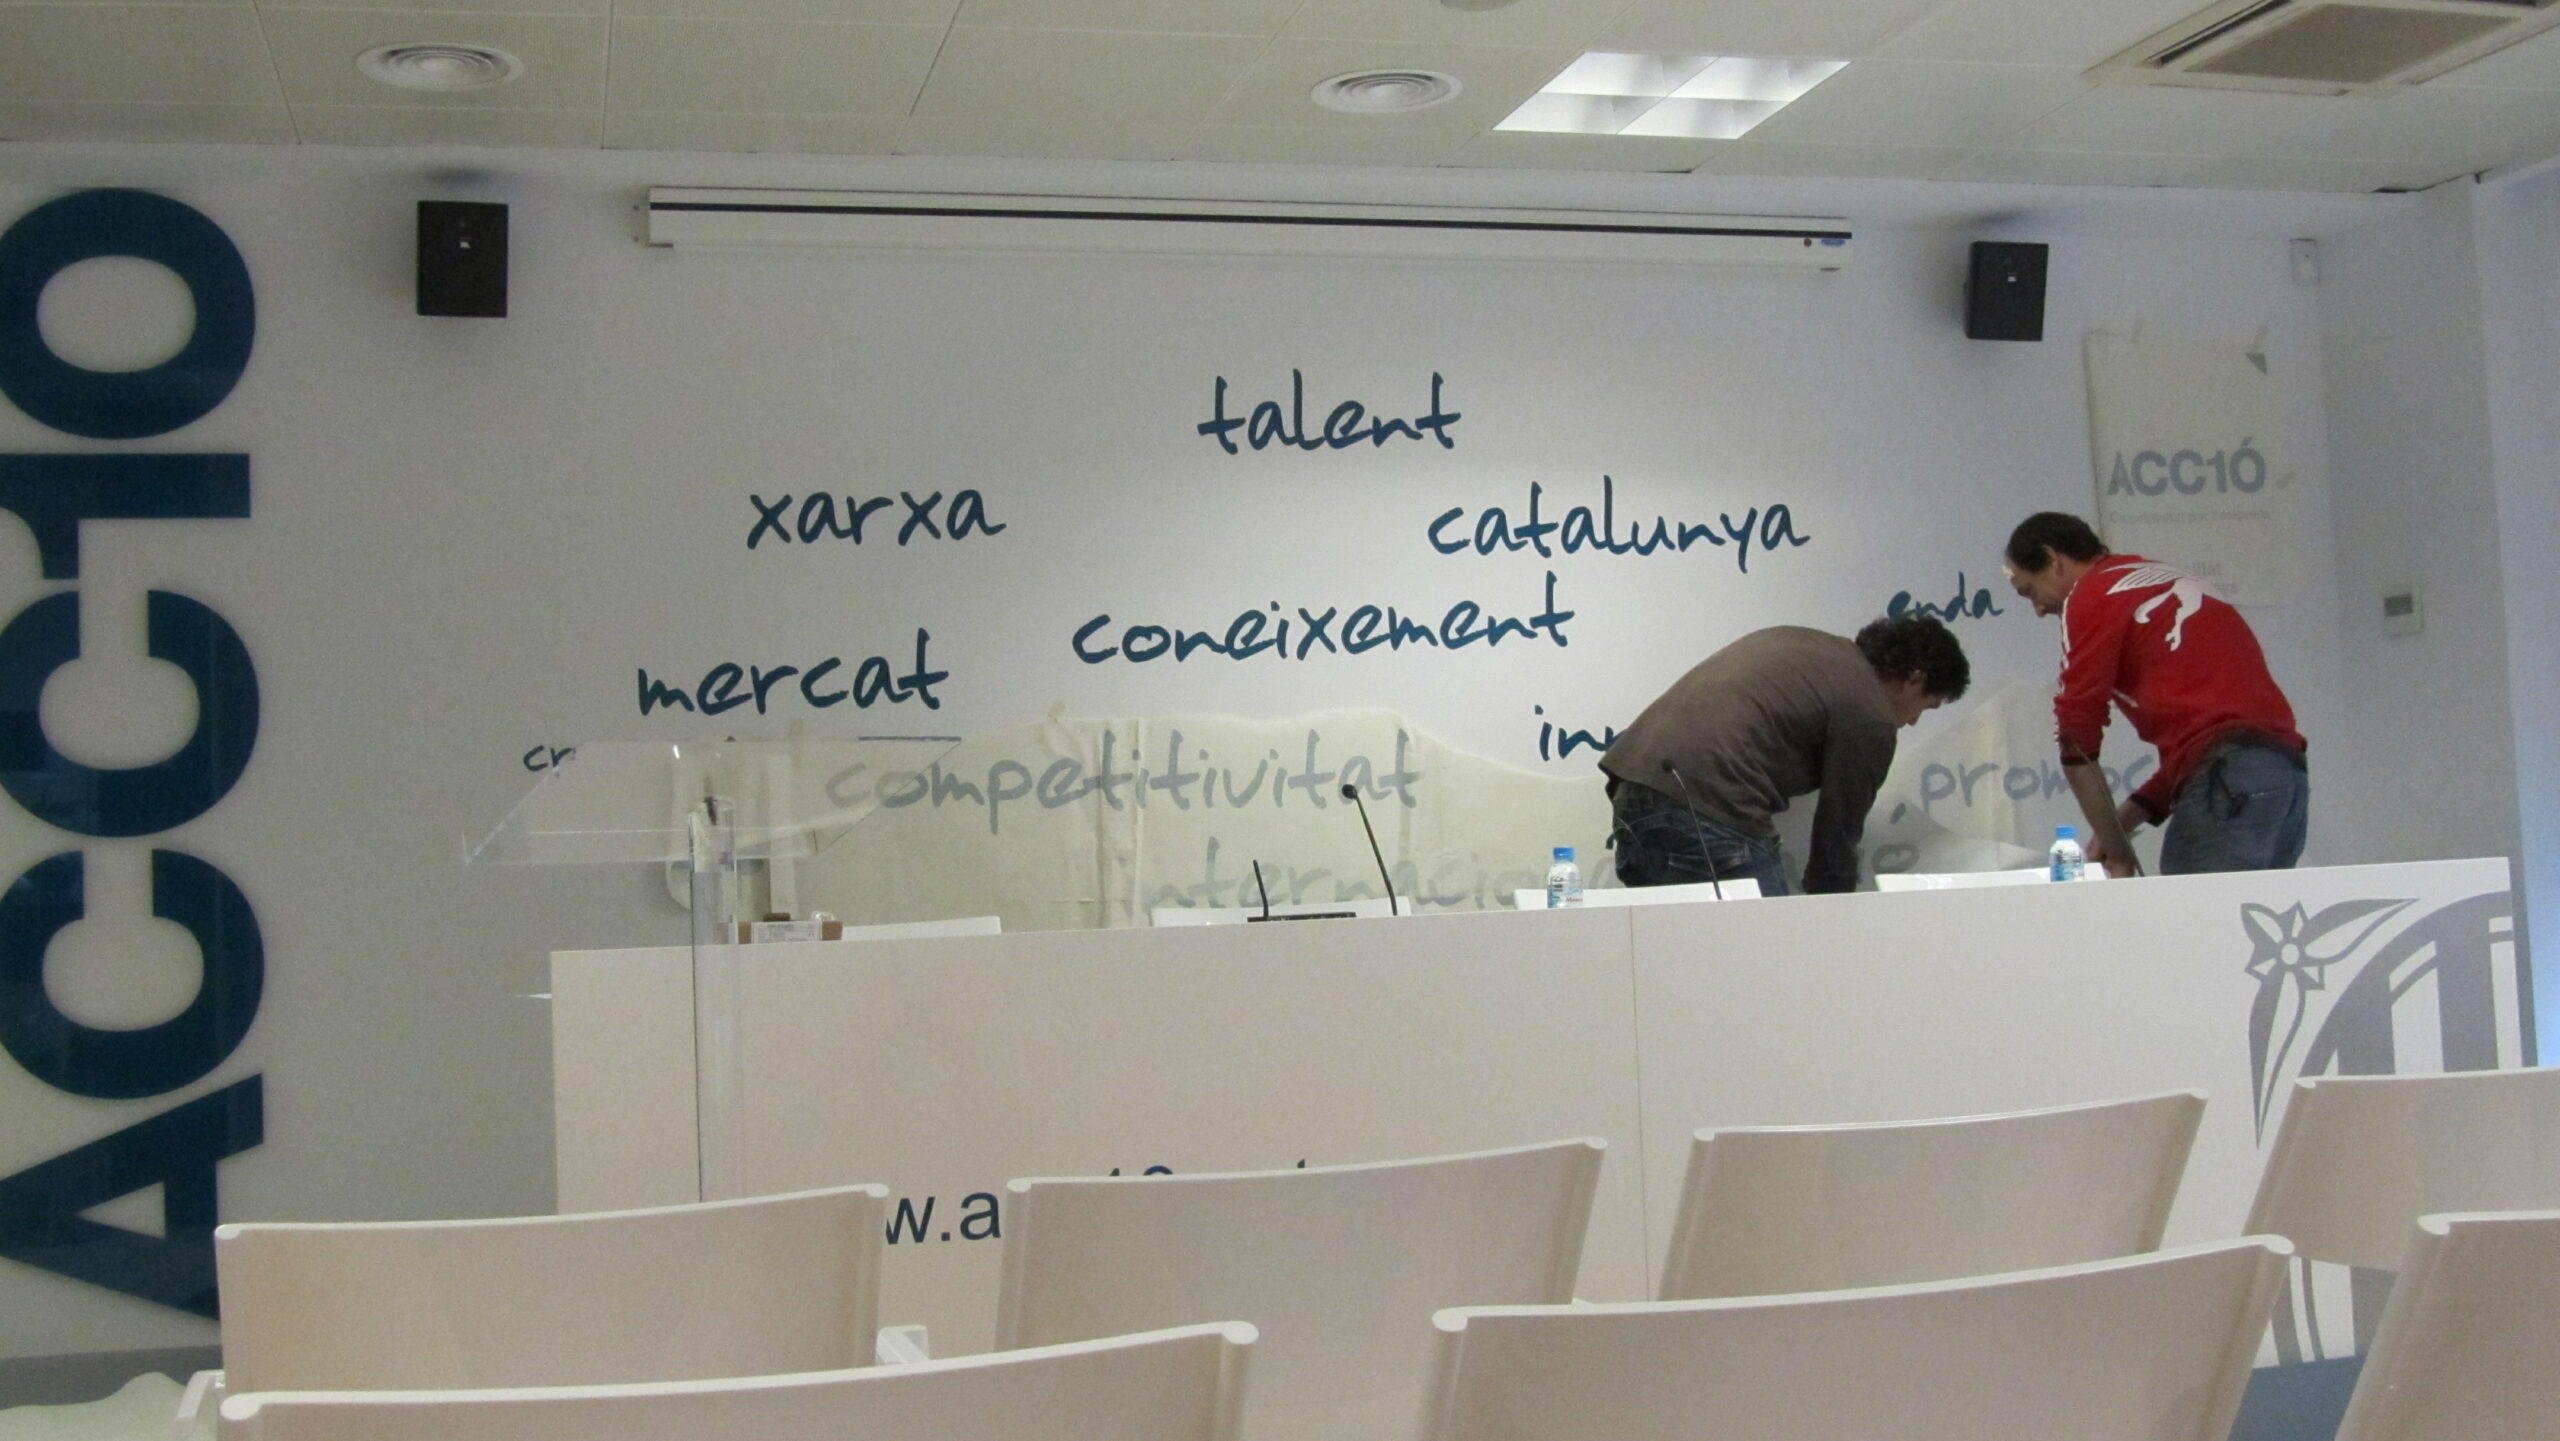 ACC10
talent
xarxa
catalunya
coneixement
enda
mercat
inn
cr
competitivitat
promoc
internaciona
ACC1Ó
w.a